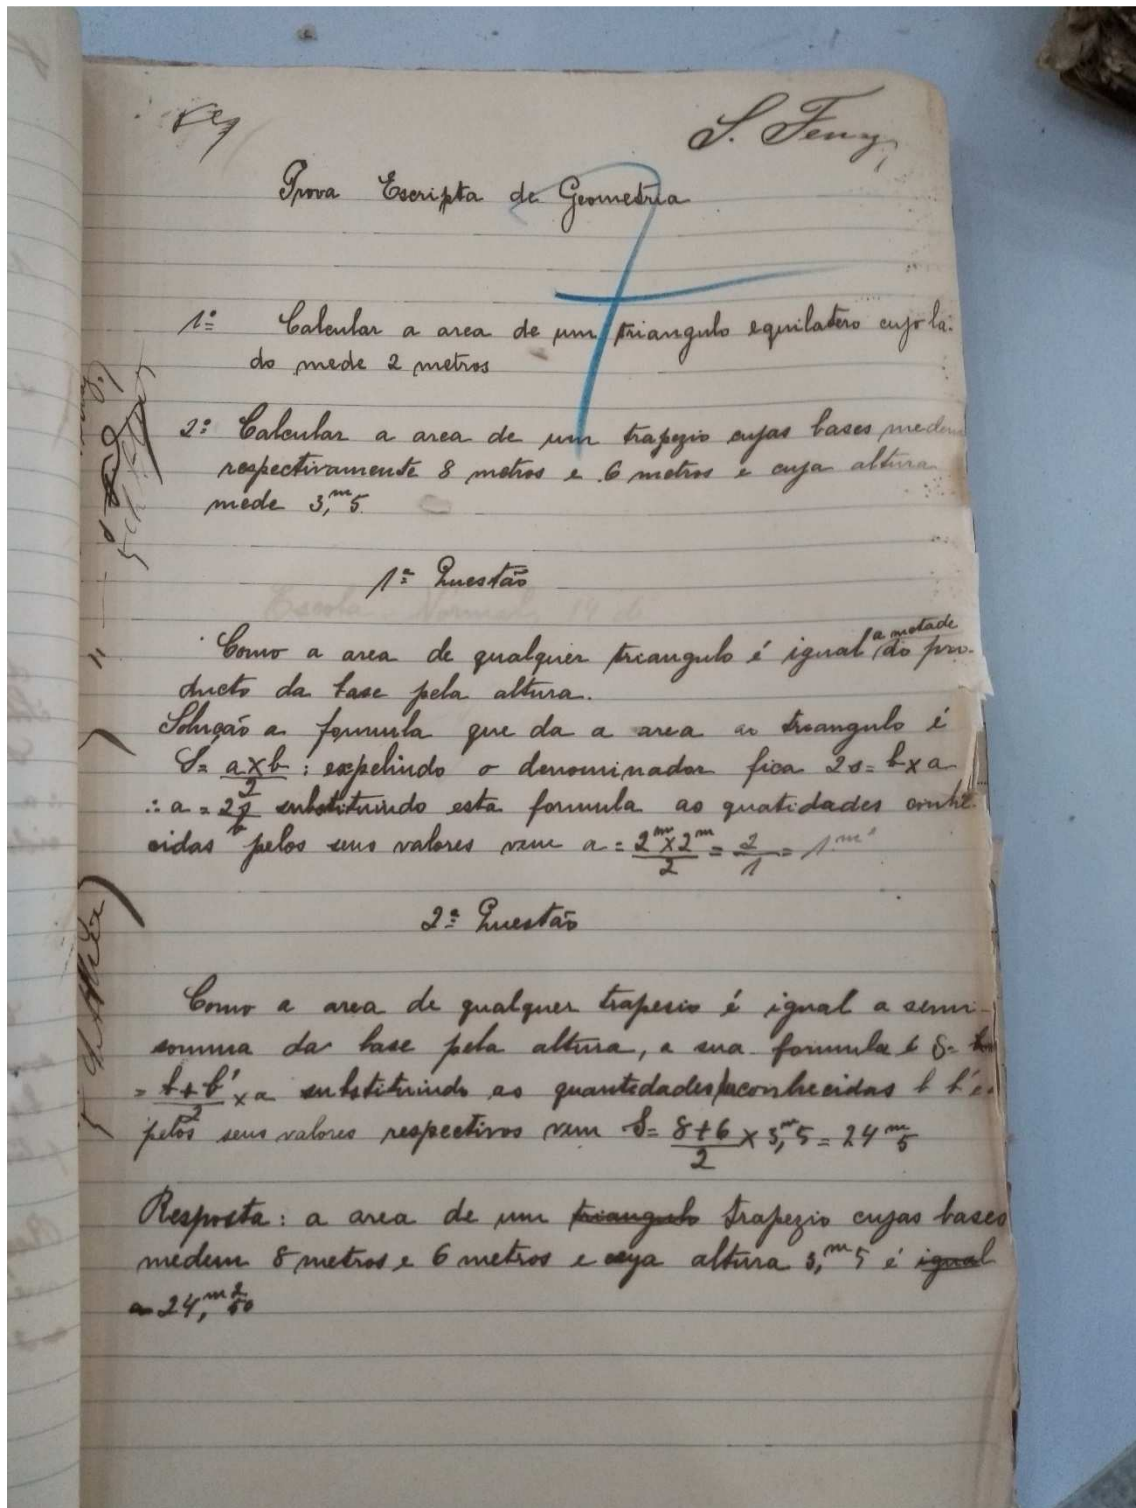 Prova Escripta de Geometria
7
1º Calcular a area de um triangulo equilatero cujo la-
do mede 2 metros
2º Calcular a area de um trapezio cujas bases medem
respectivamente 8 metros e 6 metros e cuja altura
mede 3,ᵐ5
1ª Questão
Como a area de qualquer triangulo é igual a metade do pro-
ducto da base pela altura.
Solução a formula que da a area ao triangulo é
S = a×b/2 : expelindo o denominador fica 2s = b×a
∴ a = 2s/b substituindo esta formula as quatidades conhe-
cidas pelos seus valores vem a = 2ᵐ×2ᵐ/2 = 2/1 = 1ᵐ
2ª Questão
Como a area de qualquer trapesio é igual a semi-
somma da base pela altura, a sua formula é S=
= b+b'/2 × a substituindo as quantedades conhecidas b b' e
pelos seus valores respectivos vem S = 8+6/2 × 3,ᵐ5 = 24ᵐ5
Resposta: a area de um triangulo trapezio cujas bases
medem 8 metros e 6 metros e cuja altura 3,ᵐ5 é igual
a 24,ᵐ²50